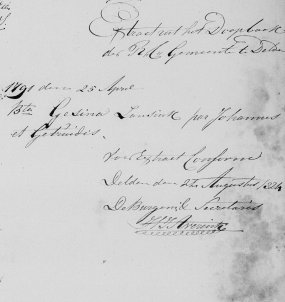 Extract uit het Doopboek
der R.K. Gemeente te Delden
1791 den 25 April
Bta Gesina Lansink per Johannes
et Getruidis.
Voor Extract Conform
Delden den 22 Augustus 1824
De Burgem. Secretaris